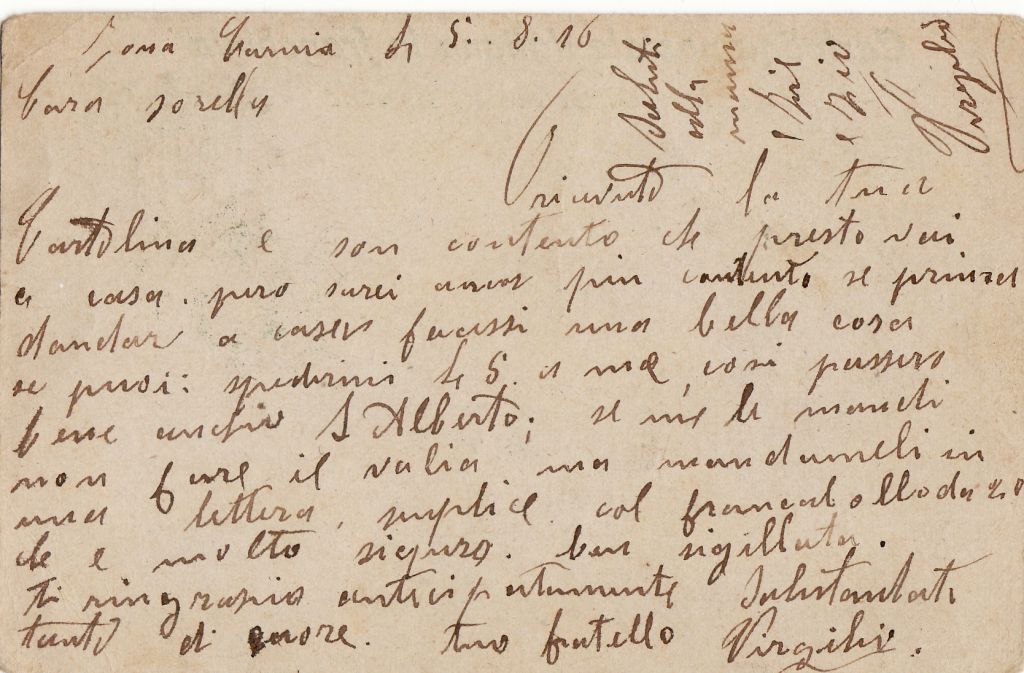 Zona Carnia li 5. 8. 16
Cara sorella
Saluti
alla
mamma
e
e Zio
Virgilio
ricevuto la tua
Cartolina e son contento che presto vai
a casa. pero sarei ancor piu contento se prima
dandar a casa facessi una bella cosa
se puoi: spedirmi L 5. a me, cosi passero
bene anchio S Alberto; se me le mandi
non fare il valia, ma mandameli in
una lettera, semplice col francobollo da 20
che e molto siguro. ben sigillata.
ti ringrazio anticipatamente Salutandoti
tanto di cuore. tuo fratello Virgilio.